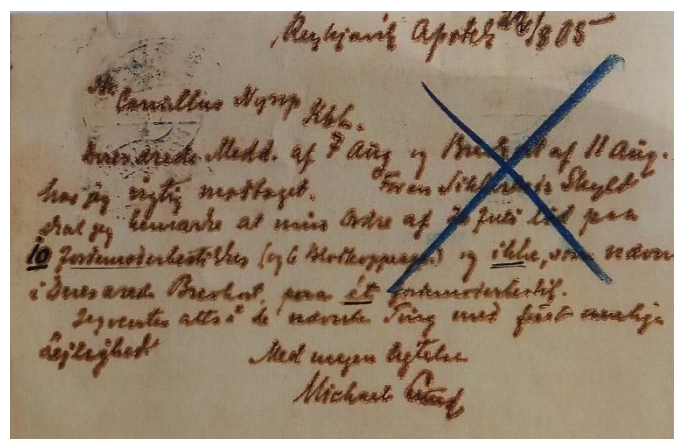 Reykjavik Apothek /8 05
Hr. Camillus Nyrop Kbh.
Deres ærede Medd. af 7 Aug og Brevkort af 11 Aug.
har jeg rigtig modtaget. For en Sikkerheds Skyld
skal jeg bemærke at min Ordre af Juli lød paa
10 Jordemoderbestikker (og 6 Blodkopper) og ikke, som nævnt
i Deres ærede Brevkort, paa ét Jordemoderbestik.
Jeg venter altså de nævnte Ting med først mulige
Lejlighed
Med megen Agtelse
Michael